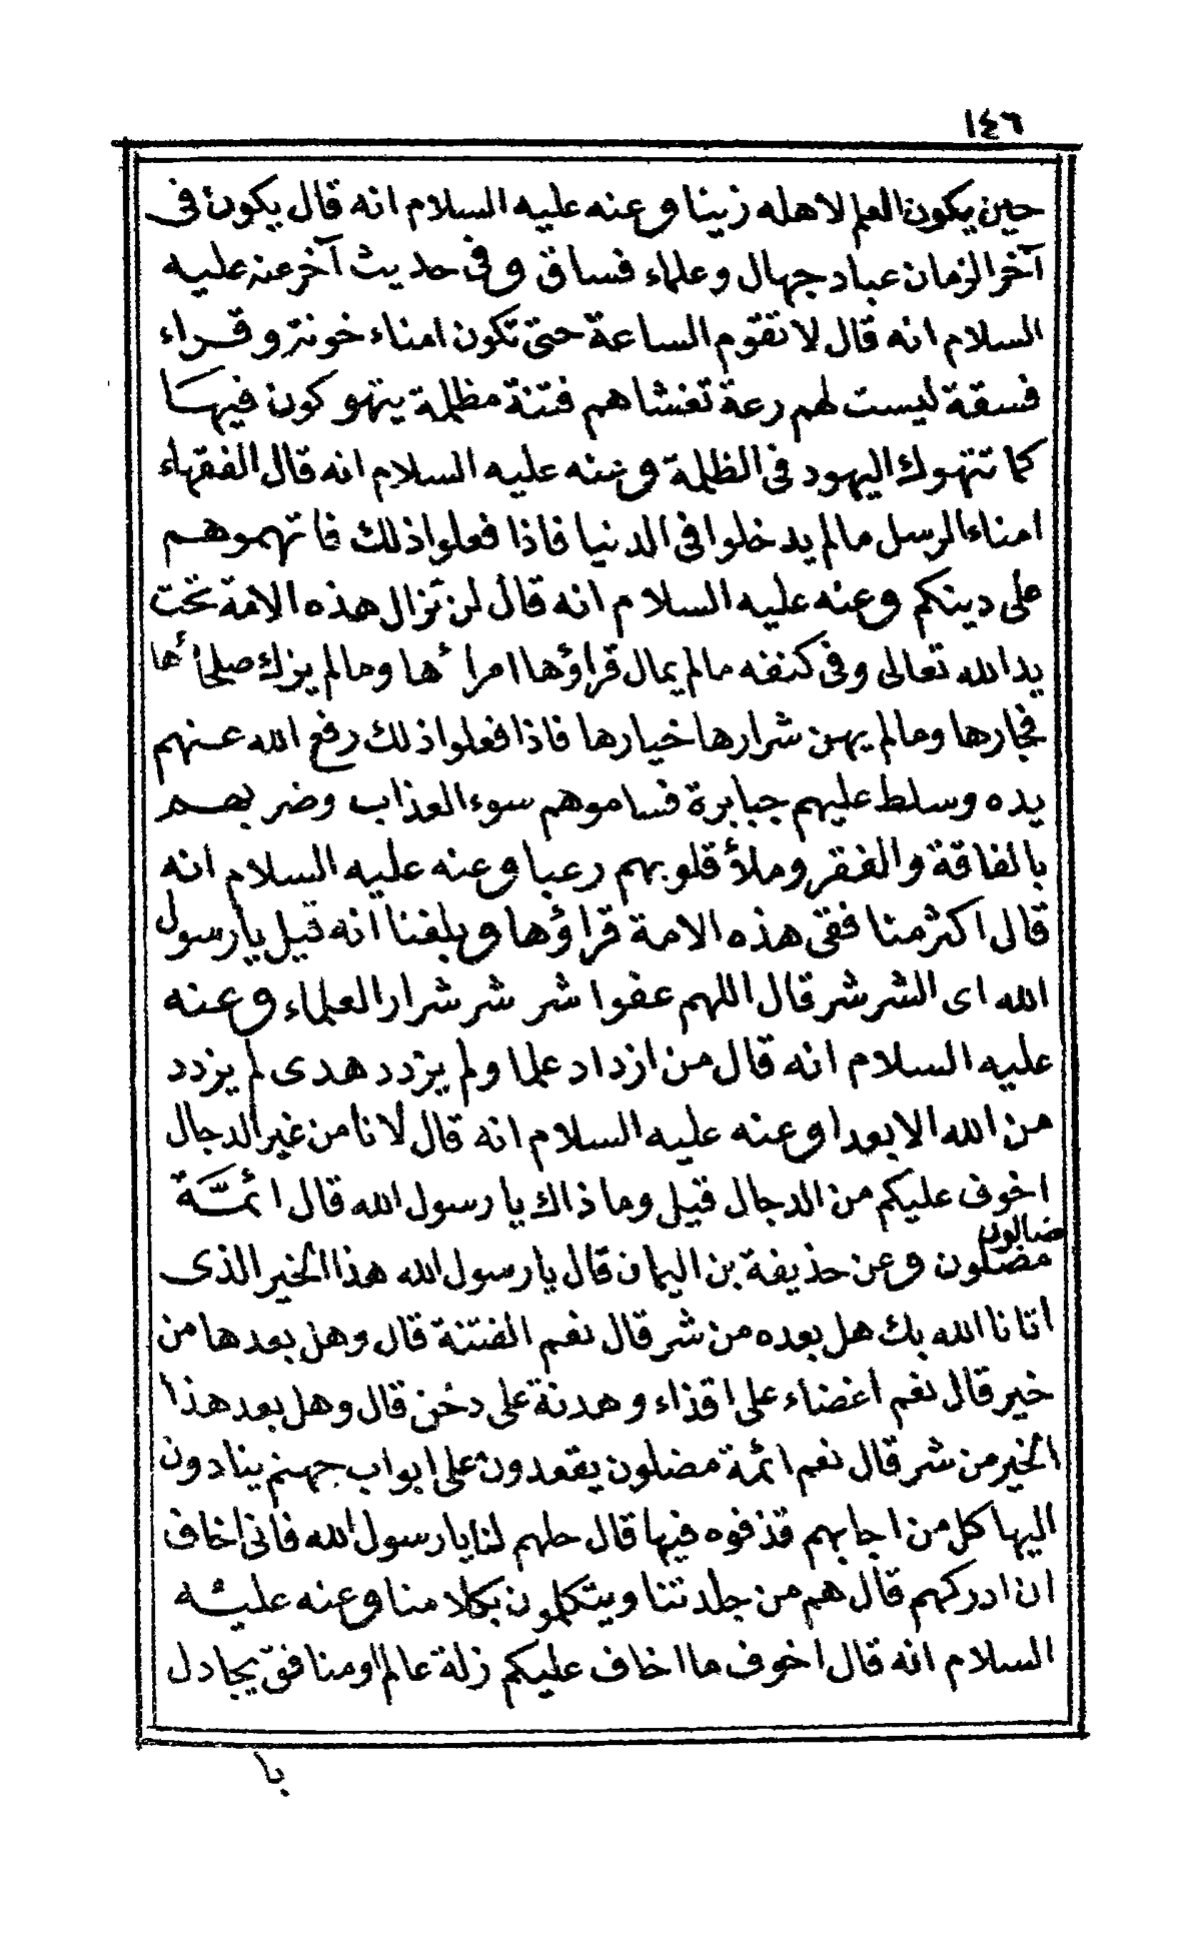 ١٤٦
حين يكون العلم لاهله زينا وعنه عليه السلام انه قال يكون فى
آخر الزمان عباد جهال وعلماء فساق وفى حديث آخر عنه عليه
السلام انه قال لا تقوم الساعة حتى تكون امناء خونة وقراء
فسقة ليست لهم رعة تغشاهم فتنة مظلمة يتهوكون فيها
كما تتهوك اليهود فى الظلمة وعنه عليه السلام انه قال الفقهاء
امناء الرسل مالم يدخلوا فى الدنيا فاذا فعلوا ذلك فاتهموهم
على دينكم وعنه عليه السلام انه قال لن تزال هذه الامة تحت
يد الله تعالى وفى كنفه مالم يمال قراؤها امراءها ومالم يزك صلحاءها
فجارها ومالم يهن شرارها خيارها فاذا فعلوا ذلك رفع الله عنهم
يده وسلط عليهم جبابرة فساموهم سوء العذاب وضربهم
بالفاقة والفقر وملأ قلوبهم رعبا وعنه عليه السلام انه
قال اكثر منافقى هذه الامة قراؤها وبلغنا انه قيل يا رسول
الله اى الشر شر قال اللهم عفوا شر شر شرار العلماء وعنه
عليه السلام انه قال من ازداد علما ولم يزدد هدى لم يزدد
من الله الا بعدا وعنه عليه السلام انه قال لانا من غير الدجال
اخوف عليكم من الدجال قيل وما ذاك يا رسول الله قال ائمّة
ضالون
مضلون وعن حذيفة بن اليمان قال يا رسول الله هذا الخير الذى
اتانا الله بك هل بعده من شر قال نعم الفتنة قال وهل بعدها من
خير قال نعم اغضاء على اقذاء وهدنة على دخن قال وهل بعد هذا
الخير من شر قال نعم ائمة مضلون يقعدون على ابواب جهنم ينادون
اليها كل من اجابهم قذفوه فيها قال حلهم لنا يا رسول الله فأنى اخاف
ان ادركهم قال هم من جلدتنا ويتكلمون بكلامنا وعنه عليه
السلام انه قال اخوف ما اخاف عليكم زلة عالم او منافق يجادل
با